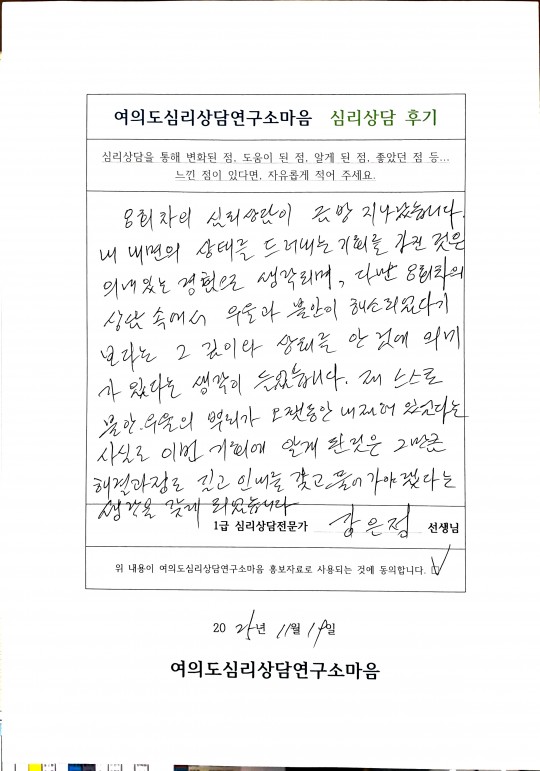 여의도심리상담연구소마음 심리상담 후기
심리상담을 통해 변화된 점, 도움이 된 점, 알게 된 점, 좋았던 점 등...
느낀 점이 있다면, 자유롭게 적어 주세요.
8회차의 심리상담이 금방 지나갔습니다.
내 내면의 상태를 드러내는 기회를 가진 것은
의미있는 경험으로 생각되며, 다만 8회차의
상담 속에서 우울과 불안이 해소되었다기
보다는 그 깊이와 상태를 안 것에 의미
가 있다는 생각이 들었습니다. 제 스스로
불안·우울의 뿌리가 오랫동안 내재되어 있었다는
사실을 이번 기회에 알게 된 것은 그만큼
해결과정도 길고 인내를 갖고 풀어가야겠다는
생각을 갖게 되었습니다
1급 심리상담전문가 강은정 선생님
위 내용이 여의도심리상담연구소마음 홍보자료로 사용되는 것에 동의합니다. ☑
2025년 11월 19일
여의도심리상담연구소마음